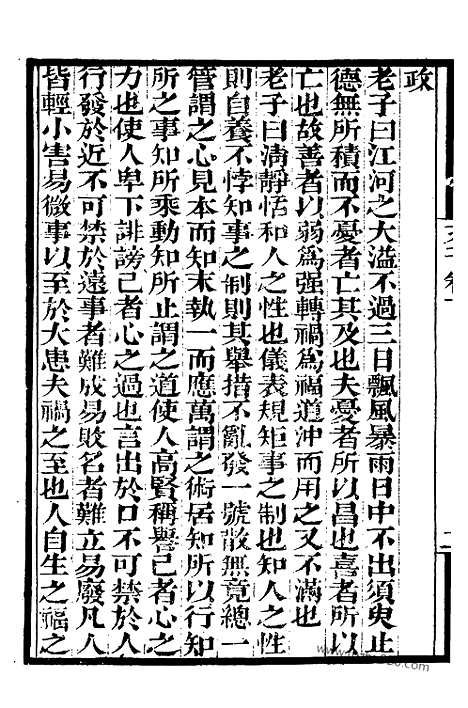 政
老子曰江河之大溢不過三日飄風暴雨日中不出須臾止
德無所積而不憂者亡其及也夫憂者所以昌也喜者所以
亡也故善者以弱為強轉禍為福道沖而用之又不滿也
老子曰清靜恬和人之性也儀表規矩事之制也知人之性
則自養不悖知事之制則其舉措不亂發一號散無竟總一
管謂之心見本而知末執一而應萬謂之術居知所以行知
所之事知所乘動知所止謂之道使人高賢稱譽己者心之
力也使人卑下誹謗己者心之過也言出於口不可禁於人
行發於近不可禁於遠事者難成易敗名者難立易廢凡人
皆輕小害易微事以至於大患夫禍之至也人自生之福之